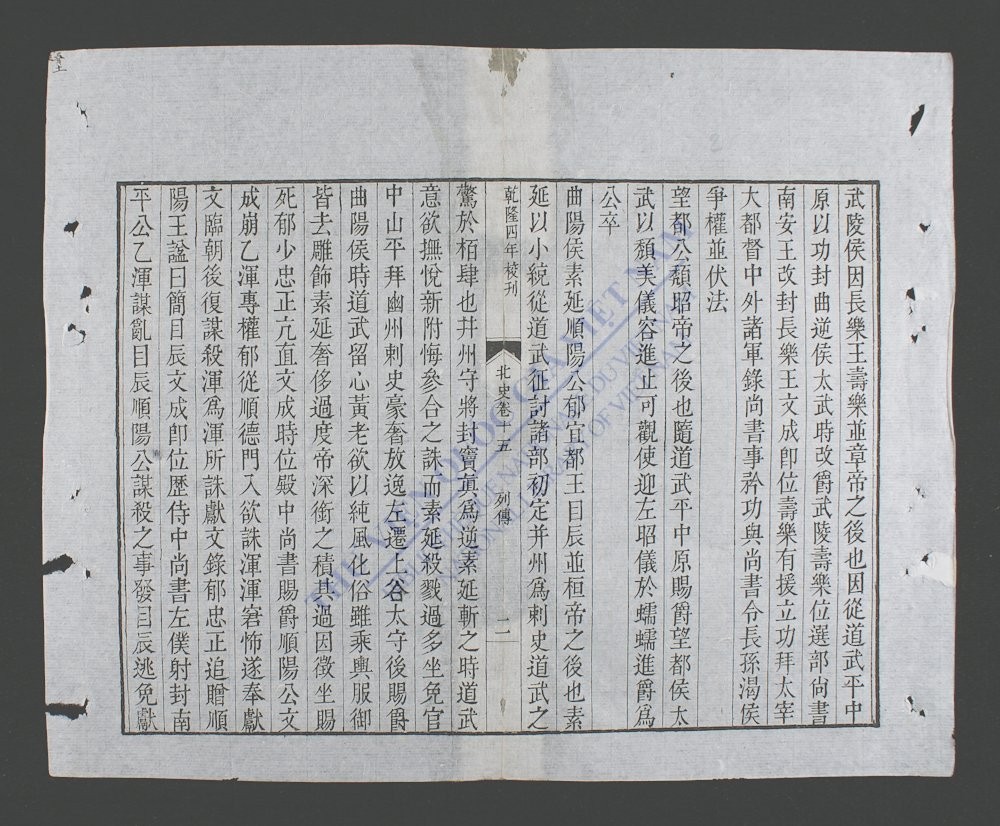 武陵侯因長樂王壽樂並章帝之後也因從道武平中
原以功封曲逆侯太武時改爵武陵壽樂位選部尚書
南安王改封長樂王文成卽位壽樂有援立功拜太宰
大都督中外諸軍錄尚書事矜功與尚書令長孫渴侯
爭權並伏法
望都公頹昭帝之後也隨道武平中原賜爵望都侯太
武以頹美儀容進止可觀使迎左昭儀於蠕蠕進爵爲
公卒
曲陽侯素延順陽公郁宜都王目辰並桓帝之後也素
延以小統從道武征討諸部初定并州爲刺史道武之
乾隆四年校刊
北史卷十五
列傳
二
驚於栢肆也并州守將封竇眞爲逆素延斬之時道武
意欲撫悅新附悔參合之誅而素延殺戮過多坐免官
中山平拜幽州刺史豪奢放逸左遷上谷太守後賜爵
曲陽侯時道武留心黃老欲以純風化俗雖乘輿服御
皆去雕飾素延奢侈過度帝深銜之積其過因徵坐賜
死郁少忠正亢直文成時位殿中尚書賜爵順陽公文
成崩乙渾專權郁從順德門入欲誅渾渾窘怖遂奉獻
文臨朝後復謀殺渾爲渾所誅獻文錄郁忠正追贈順
陽王諡曰簡目辰文成卽位歷侍中尚書左僕射封南
平公乙渾謀亂目辰順陽公謀殺之事發目辰逃免獻
THƯ VIỆN QUỐC GIA VIỆT NAM
BIBLIOTHÈQUE NATIONALE DU VIETNAM
NATIONAL LIBRARY OF VIETNAM